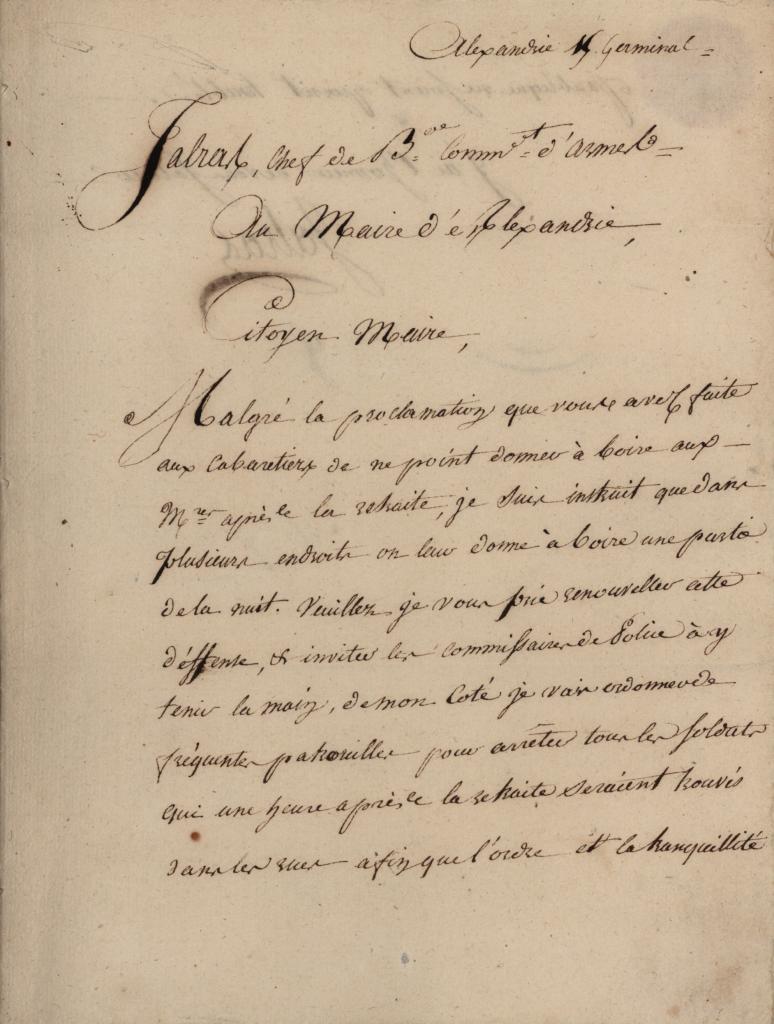 Alexandrie 15 Germinal =
Chef de B.ᵒⁿᵉ Commᵗ = d'armes
Au Maire d'Alexandrie,
Citoyen Maire,
Malgré la proclamation que vous avez faite
aux Cabaretiers de ne point donner à boire aux
Mʳᵉˢ après la retraite, je suis instruit que dans
plusieurs endroits on leur donne à boire une partie
de la nuit. Veuillez je vous prie renouveller cette
déffense, & inviter les Commissaires de Police à y
tenir la main, de mon Coté je vais ordonner de
fréquentes patrouilles pour arrêter tous les soldats
qui une heure après la retraite seraient trouvés
dans les rues afin que l'ordre et la tranquillité